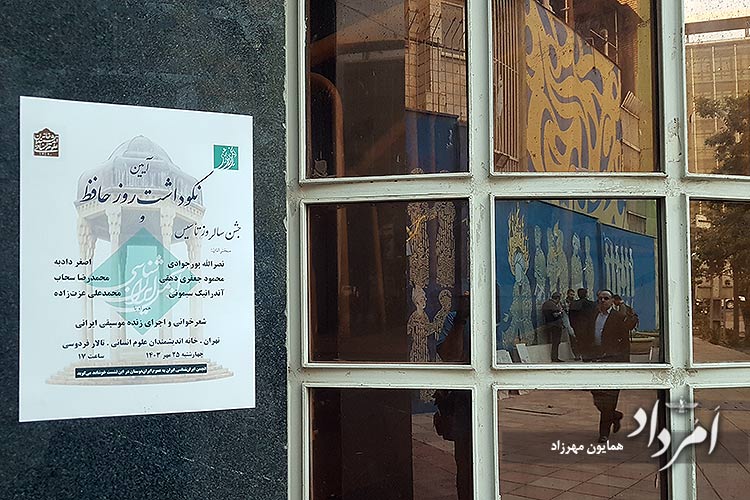 آیین
نکوداشت روز حافظ
و
جشن سالروز تأسیس
سخنرانان:
نصرالله پورجوادی
اصغر دادبه
محمود جعفری دهقی
محمدرضا سحاب
آندرانیک سیمونی
محمدعلی عزت‌زاده
همراه با
شعرخوانی و اجرای زنده موسیقی ایرانی
تهران . خانه اندیشمندان علوم انسانی . تالار فردوسی
چهارشنبه ۲۵ مهر ۱۴۰۳
ساعت ۱۷
امرداد
همایون مهرزاد